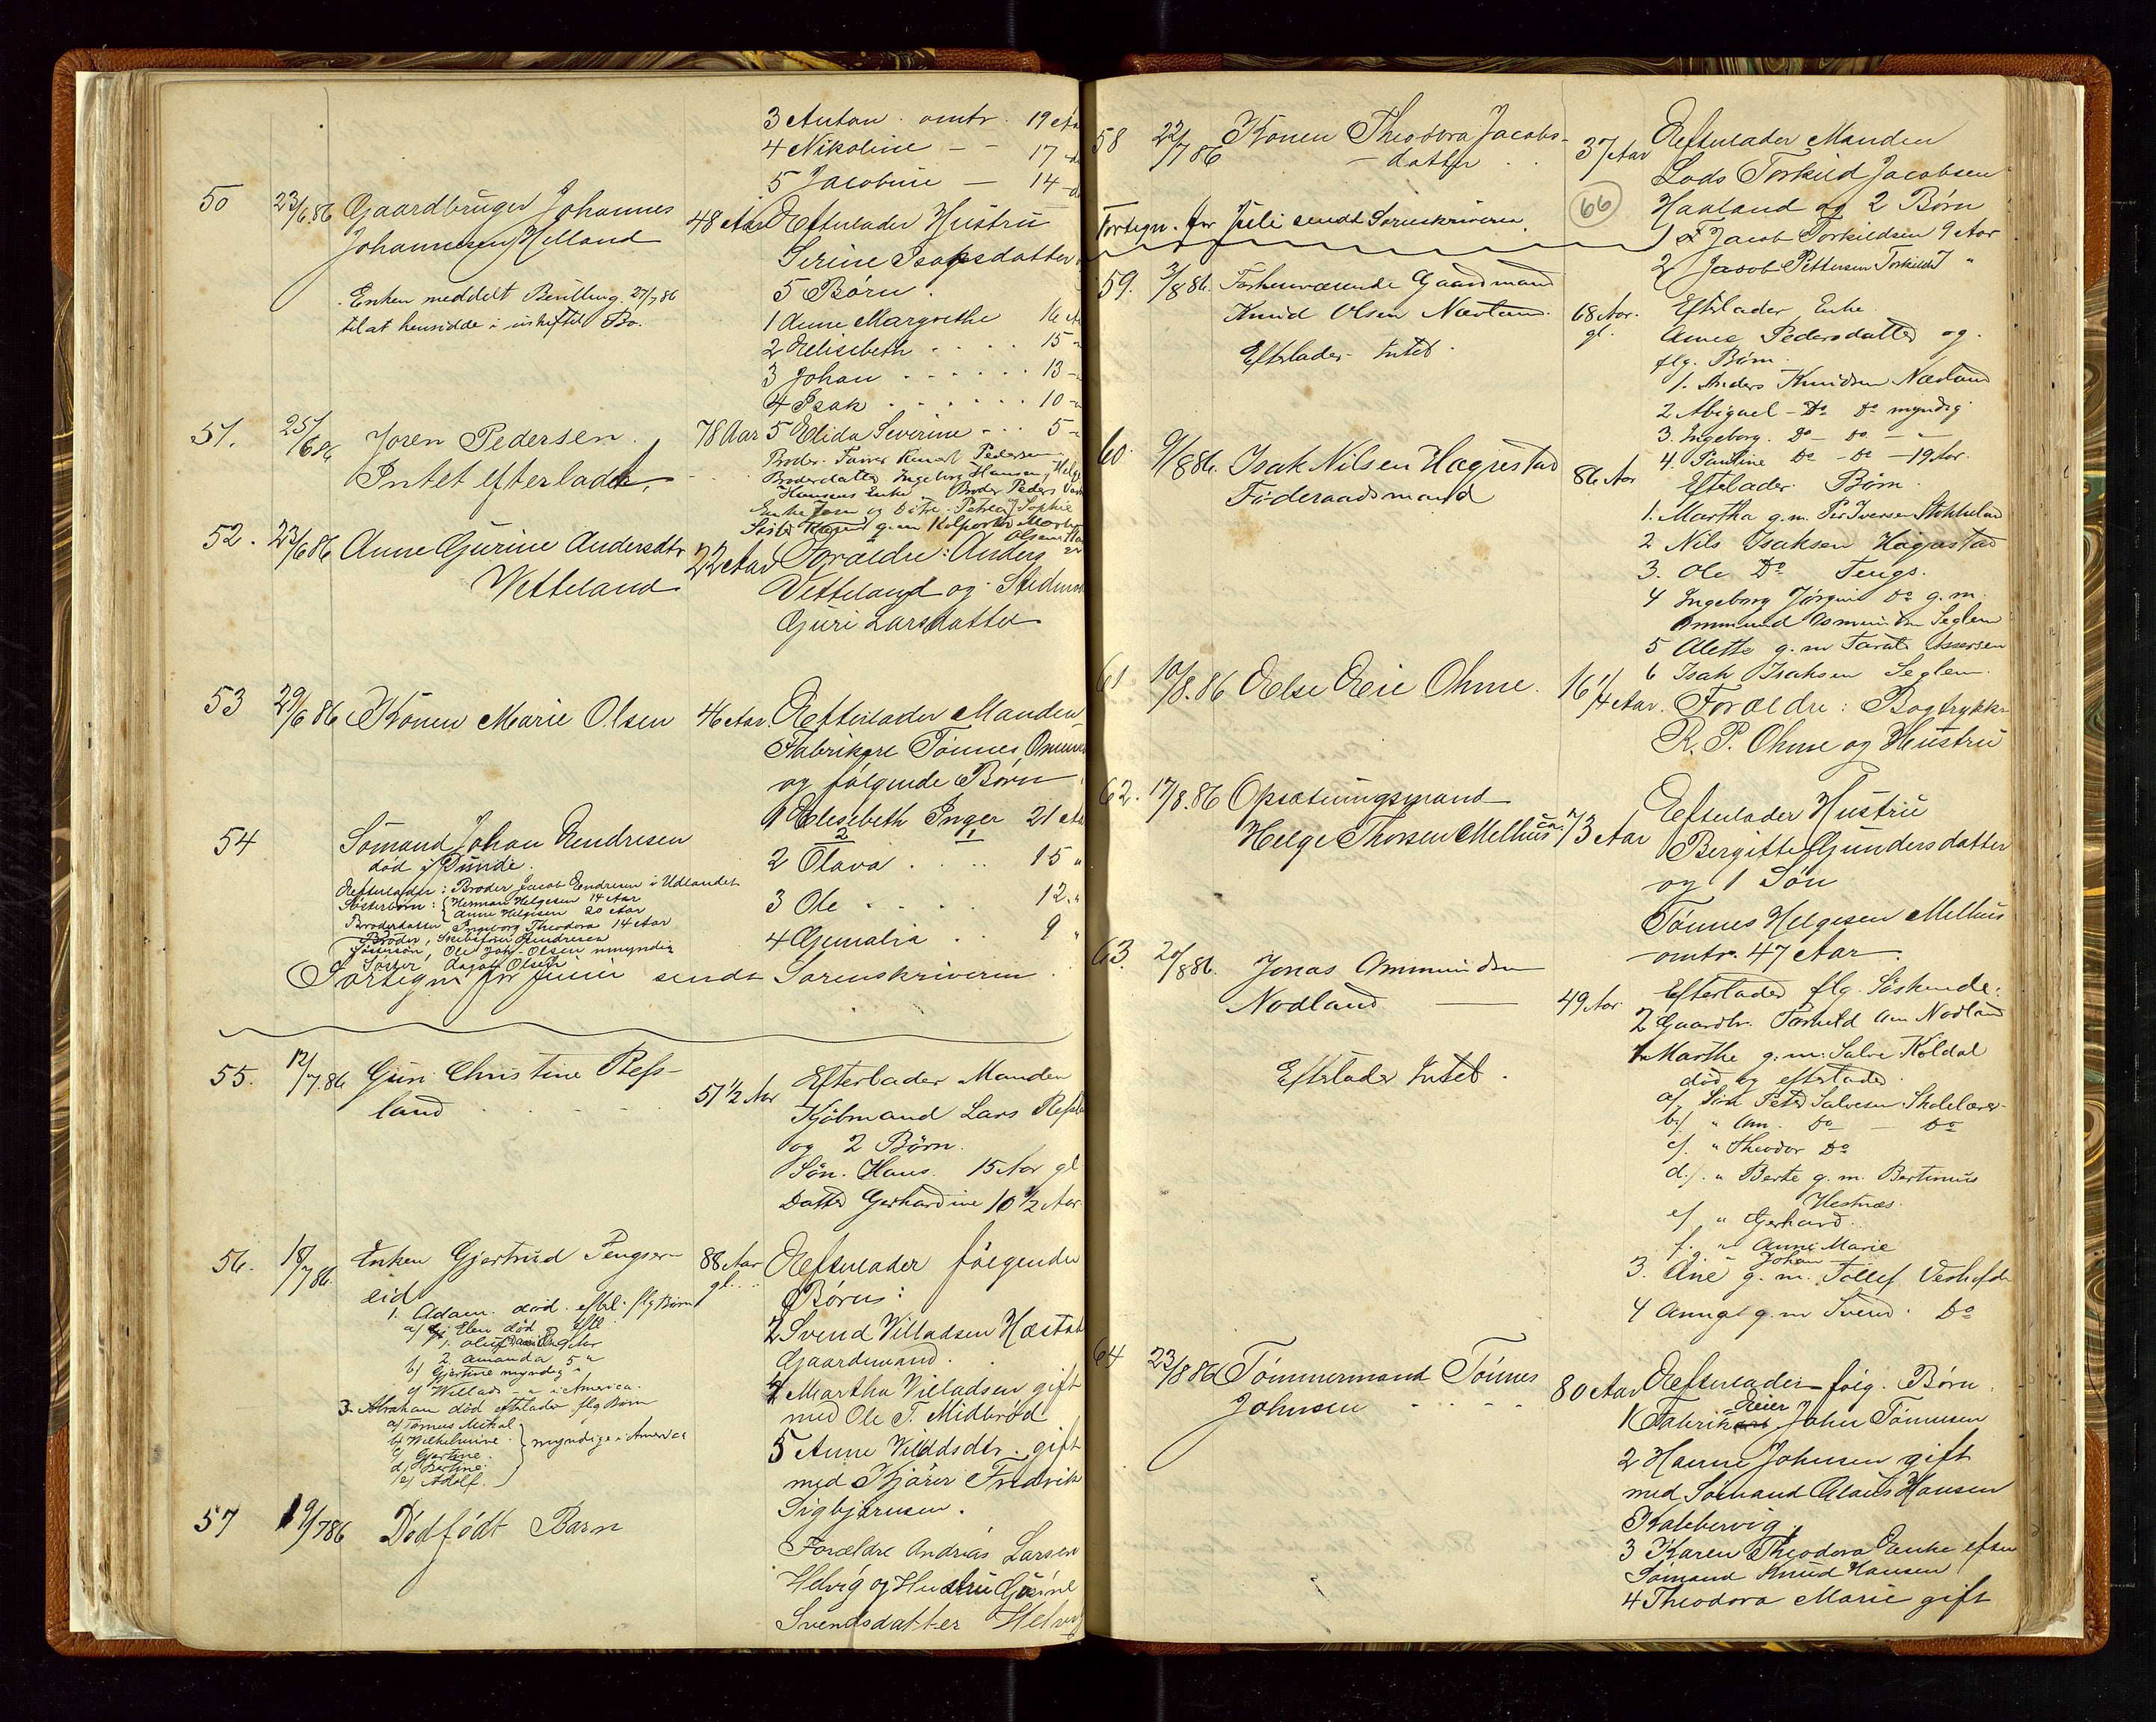 3 Anton . omtr. 19 Aa
4 Nikoline – – 17 –
5 Jacobine — 14 –
50 23/6.86 Gaardbruger Johannes
Johannesen Helland
48 Aar Efterlader Hustru
Serine Isaksdatter
5 Børn .
Enken meddelt Bevilling 27/7 86
til at hensidde i uskiftet Bo.
1 Anne Margrethe 16
2 Elisebeth . . . . 15 –
3 Johan . . . . . . 13 –
4 Isak . . . . . . 10 –
5 Elida Severine - - . 5 –
51. 25/6 86 Joren Pedersen . 78 Aar
Intet efterladt.
Broderdatter Ingeborg Hansen
Hansens Enke Broder Peders
52. 23/6 86 Anne Gurine Andersdtr
Vetteland
22 Aar Forældre : Anders
Vetteland og Stedmo
Guri Larsdatter
53 29/6 86 Konen Marie Olsen 46 Aar. Efterlader Manden
Tønnes
og følgende Børn
1 Elisebeth Inger 21
2 Olava . . . . 15 "
3 Ole . . . . 12. "
4 Gemalia . . 9 "
54 Sømand Johan Endresen
død i Dundé.
Efterlader : Broder Jacob Endresen i Udlandet
Søsterbørn : { Herman Helgesen 14 Aar
Anne Helgesen 20 Aar
Broderdatter Ingeborg Theodora 14 Aar
Fortegn for Juni sendt Sorenskriveren .
55. 12/7.86 Guri Christine Refs-
land . . - -
51 1/2 Aar Efterlader Manden
Kjøbmand Lars Refsl
og 2 Børn.
Søn. Hans. 15 Aar gl
Datter Gerhardine 10 1/2 Aar
56. 18/7 86. Enken Gjertrud Tengser-
eid
88 Aar
gl. . .
Efterlader følgende
Børn :
1. Adam død . efterl. flg Børn
a/ Elen død
2. Amanda 5 "
b/ Gjertine myndig
c/ Willads – " i America.
3. Abraham død efterlader flg Børn
a/ Tønnes Mikal
b/ Wilhelmine .
c/ Gjertine.
d/ Bertine.
e/ Adolf.
} myndige i America
2 Svend Villadsen Hæstad
Gaardmand .
4 Martha Villadsen gift
med Ole T. Midbrød
5 Anne Villadsdtr. gift
med Kjører Fredrik
Sigbjørnsen .
57 19/7 86 Dødfødt Barn
Forældre Andrias Larsen
Helvig og Hustru
Svendsdatter Helvig
58 22/7 86 Konen Theodora Jacobs-
– datter . .
37 Aar Efterlader Manden
Lods Torkild Jacobsen
Haaland og 2 Børn
1 Jacob Torkildsen 9 Aar
2 Jacob Pettersen Torkilds 7 "
66
Fortegn. for Juli sendt Sorenskriveren.
59. 3/8 86. Forhenværende Gaardmand
Knud Olsen Nævland .
68 Aar.
gl.
Efterlader Intet .
Efterlader Enke
Anne Pedersdatter og
flg. Børn.
1. Anders Knudsen Nævland
2 Abigael – Do Do myndig
3. Ingeborg. Do – Do – –
4. Pauline Do – Do – 19 Aar.
60. 9/8 86. Isak Nilsen Hægrestad
Føderaadsmand
86 Aar
Efterlader Børn .
1. Martha g. m. Per Iversen
2 Nils Isaksen Hægrestad
3. Ole Do Tengs.
4 Ingeborg Jørgine Do g. m.
Ommund Asmundsen Seglem
5 Alette g. m Assersen
6 Isak Isaksen Seglem.
61 10/8.86 Else Eeie Ohme . 16 1/4 Aar. Forældre : Bogtrykker
R. P. Ohme og Hustru
62. 17/8.86 Opsætningsmand
Helge Thorsen Melhus
ca. 73 Aar
Efterlader Hustru
Bergitte Gundersdatter
og 1 Søn
Tønnes Helgesen Melhus
omtr. 47 Aar .
63. 20/8 86. Jonas Ommundsen
Nodland ——
49 Aar.
Efterlader Intet .
Efterlader flg. Søskende :
2 Gaardbr. Torkild Om Nodland
1. Marthe g. m. Salve Koldal
død og efterlader
a/ Søn Peter Salvesen Skolelærer
b/ " Om. Do — Do
c/. " Theodor Do
d./. " Berte g. m. Bertinius
Hestnæs.
e/ " Gerhard.
f. " Anne Marie
g. " Johan
3. Ane g. m. Tollef
4 g. m Svend . Do
64 23/8 86 Tømmermand Tønnes
Johnsen . - . -
80 Aar Efterlader følg. Børn .
1 Fabrikeier John Tønnesen
2 Hanne Johnsen gift
med Sømand Claus Hansen
Kalhevig.
3 Karen Theodora Enke efter
Sømand Knud Hansen
4 Theodora Marie gift